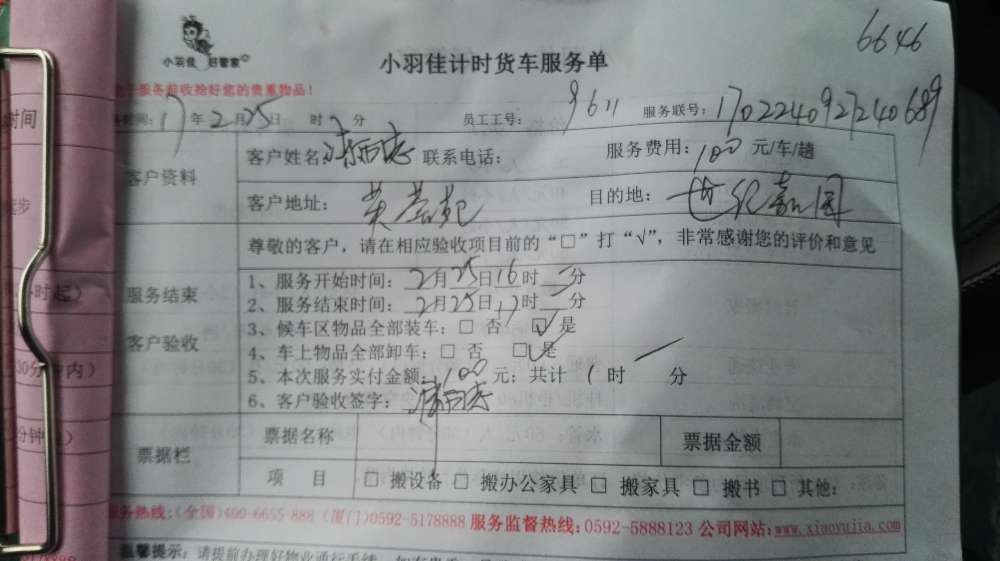 6646
小羽佳 好管家
小羽佳计时货车服务单
服务前收拾好您的贵重物品！
时间：17年2月25日 时 分 员工工号：9611 服务联号：1702240927240689
时间
客户资料
客户姓名 联系电话： 服务费用：100元/车/趟
客户地址： 目的地：世纪嘉园
尊敬的客户，请在相应验收项目前的“□”打“√”，非常感谢您的评价和意见
服务结束
客户验收
1、服务开始时间：2月25日16时 分
2、服务结束时间：2月25日17时 分
3、候车区物品全部装车：□ 否 ☑ 是
4、车上物品全部卸车：□ 否 ☑ 是
5、本次服务实付金额：100元；共计 1时 分
6、客户验收签字：
票据栏
票据名称 票据金额
项 目 □ 搬设备 □ 搬办公家具 □ 搬家具 □ 搬书 □ 其他：
服务热线：(全国)400-6655-888 (厦门)0592-5178888 服务监督热线：0592-5888123 公司网站：www.xiaoyujia.com
温馨提示：请提前办理好物业通行手续，